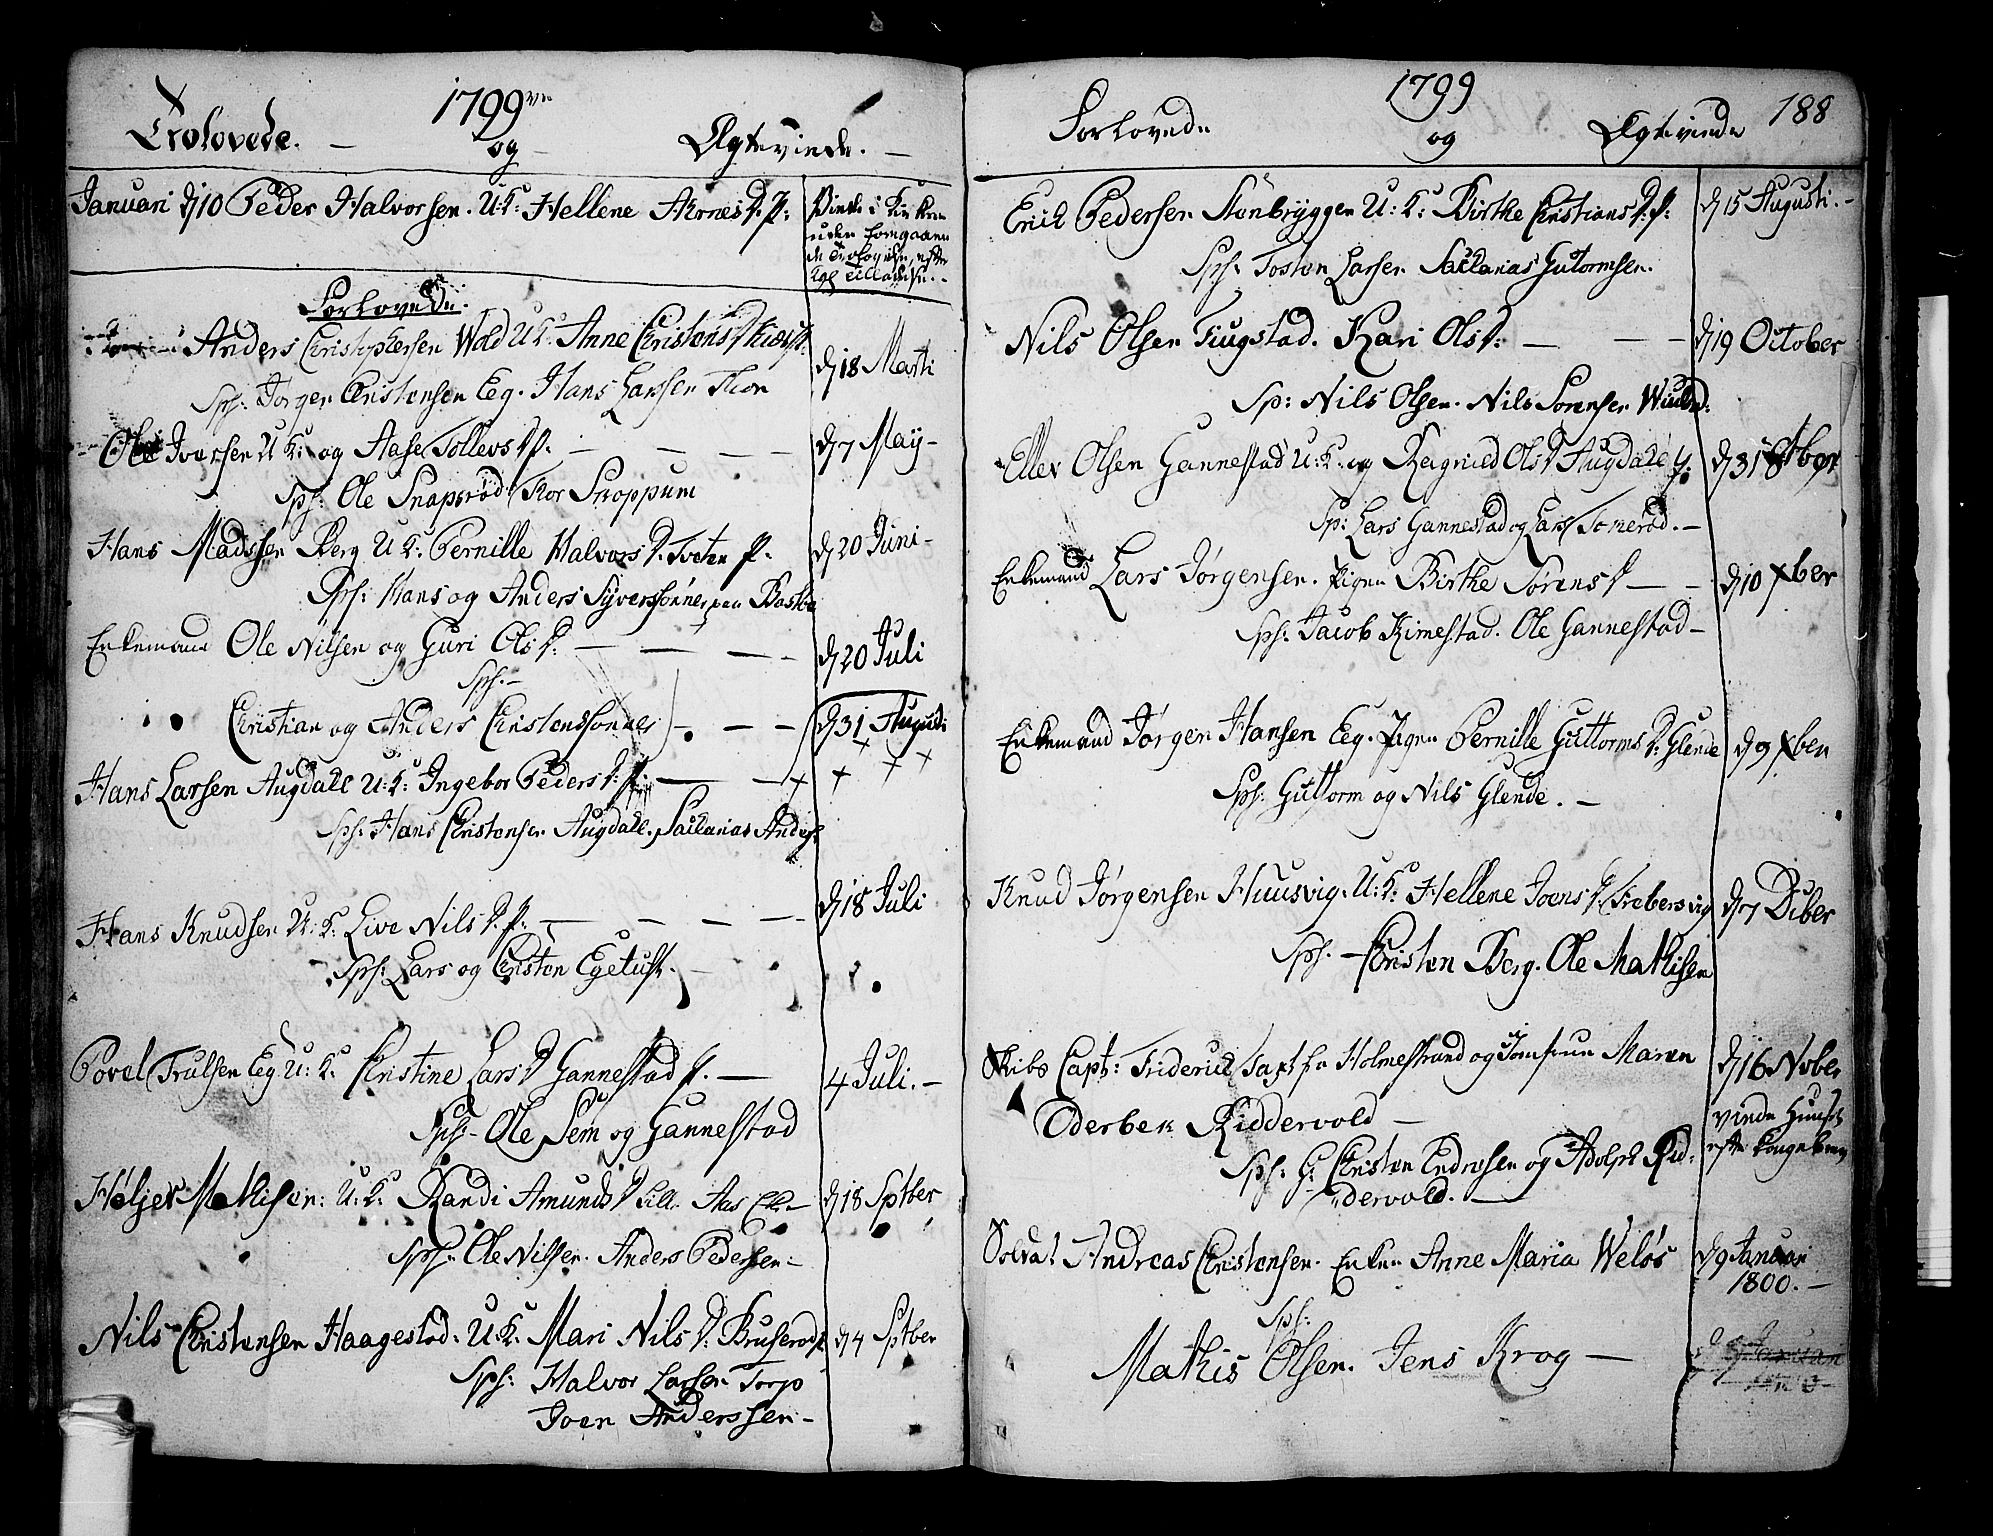 1799
Trolovede. — og — Ægteviede. —
Januari d 10 Peder Halvorsen. U:K: Hellene Arnes D. P:
Viede i Kirken
uden foregaaen
de Trolovelse, efter
Kgl Tilladelse. -
Forlovede:
Anders Christophersen Wold U:K: Anne Christens D
d 18 Marti
Sph: Jørgen Christensen Eeg. Hans Larsen Thon
Ole Iversen U:K: og Aase Tollevs D P. — — — —
d 7 May -
Sph: Ole Snapsrød Thor Snoppum
Hans Madssen Berg U:K: Pernille Halvors D. Tveten P.
d 20 Juni -
Sph: Hans og Anders Syverssønner paa Basbe
Enkemand Ole Nilsen og Guri Ols D: — — — —
d 20 Juli
Sph: -
Christian og Anders Christenssønner — — —
d 31 Augusti
Hans Larsen Augdall U:K: Ingebor Peders D: P: — — +
+ + + +
Sph: Hans Christensen Augdall. Sacharias Anders:
Hans Knudsen U:K: Live Nils D. P. — — — —
d 18 Juli
Sph: Lars og Christen Egetuft.
Povel Trulsen Eeg U:K: Christine Lars D Gannestad P. —
4 Juli. -
Sph: Ole Sem og Gannestad
Høljer Mathisen: U:K: Randi Amunds D Lille Aas Enke
d 18 Sptber
Sph: Ole Nilsen. Anders Pedersen -
Nils Christensen Haagestad. U:K: Mari Nils D: Bruserød P.
d 4 Sptber
Sph: Halvor Larsen Torp
Joen Anderssen -
1799
188
Forlovede og Ægteviede
Erich Pedersen Stenbryggen U:K: Birthe Christians D: P:
d 15 Augusti. -
Sph: Tosten Larsen Sacharias Gutormsen.
Nils Olsen Fiugstad. Kari Ols D: — — —
d 19 October
Sp: Nils Olsen. Nils Sørensen
Ellev Olsen Gannestad U:K: og Ragnild Ols D Augdahl P:
d 31 8tber
Sp: Lars Gannestad og Lars Tomerød. -
Enkemand Lars Jørgensen. Pigen Birthe Sørens D — —
d 10 Xber
Sph: Jacob Kimestad. Ole Gannestad -
Enkemand Jørgen Hansen Eeg. Pigen Pernille Guttorms D: Glende
d 9 Xber
Sph: Guttorm og Nils Glende. . -
Knud Jørgensen Huusvig. U:K: Hellene Joens D.
d 7 Diber
Sph. - Christen Berg. Ole Mathisen
Skibs Capt: Friderich fra Holmestrand og Jomfrue Maren
d 16 Nvber
Oderbek Riddervold —
viede Huuset
efter Kongebrev
Sph: G: Christen Endresen og Adolph Rid:
dervold. —
Soldat Andreas Christensen. Enken Anne Maria Weløs
d 9 Januar
1800. -
Sph:
Mathis Olsen. Jens Krog —
d 9 Januar